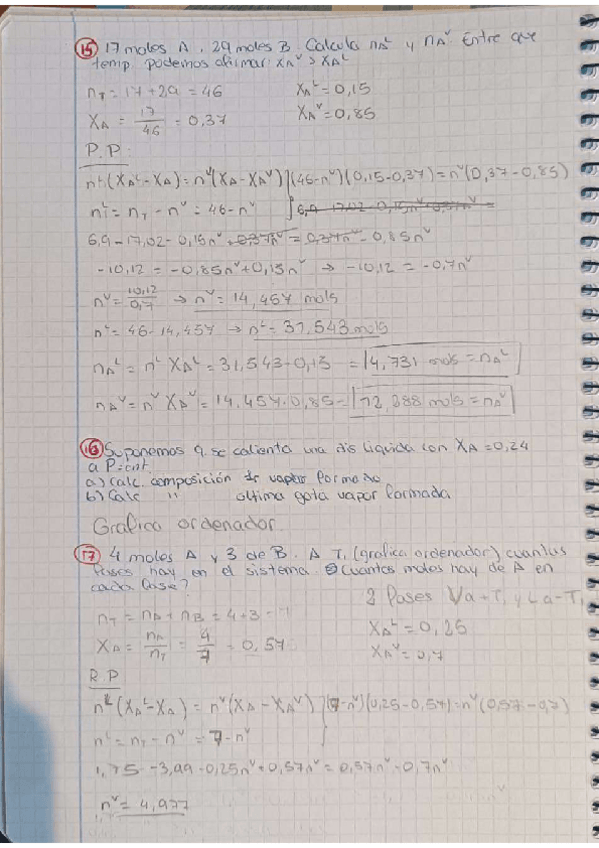 15 17 moles A, 29 moles B. Calcula nAᴸ y nAⱽ. Entre que
temp. podemos afirmar XAⱽ > XAᴸ
nT = 17 + 29 = 46 XAᴸ = 0,15
XA = 17/46 = 0,37 XAⱽ = 0,85
P.P:
nᴸ(XAᴸ-XA) = nⱽ(XA-XAⱽ) (46-nⱽ)(0,15-0,37) = nⱽ(0,37-0,85)
nᴸ = nT - nⱽ = 46-nⱽ
6,9-17,02-0,15nⱽ+0,37nⱽ = 0,37nⱽ-0,85nⱽ
-10,12 = -0,85nⱽ+0,15nⱽ → -10,12 = -0,7nⱽ
nⱽ = 10,12/0,7 → nⱽ = 14,457 mols
nᴸ = 46-14,457 → nᴸ = 31,543 mols
nAᴸ = nᴸ XAᴸ = 31,543·0,15 = 4,731 mols = nAᴸ
nAⱽ = nⱽ XAⱽ = 14,457·0,85 = 12,288 mols = nAⱽ
16 Suponemos q. se calienta una dis liquida con XA = 0,24
a P=cnt.
a) calc. composición de vapor formado
b) Calc " ultima gota vapor formada
Grafica ordenador
17 4 moles A y 3 de B. A T₁ (grafica ordenador) cuantas
fases hay en el sistema Cuantos moles hay de A en
cada fase?
2 fases V a + T₁ y L a - T₁
nT = nA + nB = 4+3 = 7 XAᴸ = 0,25
XA = nA/nT = 4/7 = 0,57 XAⱽ = 0,7
R.P
nᴸ(XAᴸ-XA) = nⱽ(XA-XAⱽ) (7-nⱽ)(0,25-0,57) = nⱽ(0,57-0,7)
nᴸ = nT - nⱽ = 7-nⱽ
1,75-3,99-0,25nⱽ+0,57nⱽ = 0,57nⱽ-0,7nⱽ
nⱽ = 4,977